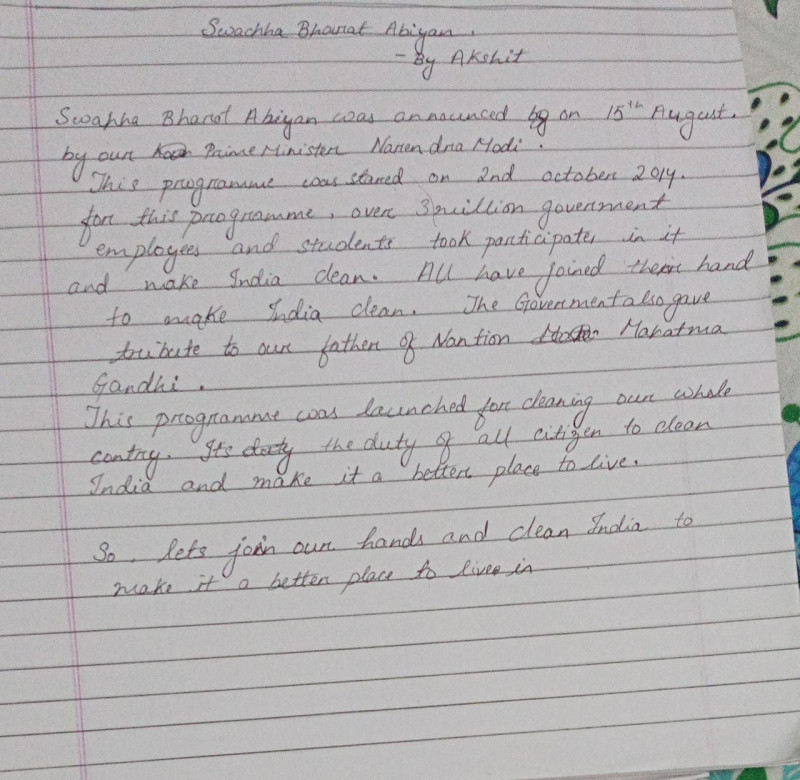 Swachha Bharat Abiyan.
- By Akshit
Swahha Bharat Abiyan was announced by on 15th August.
by our Prime Minister Narendra Modi.
This programme was stared on 2nd october 2014.
for this programme, over 3 million government
employees and students took participate, in it
and make India clean. All have joined their hand
to make India clean. The Governmentalso gave
tribute to our father of Nantion Mahatma
Gandhi.
This programme was launched for cleaning our whole
contry. It's duty the duty of all citizen to clean
India and make it a better place to live.
So, lets join our hands and clean India to
make it a better place to live in